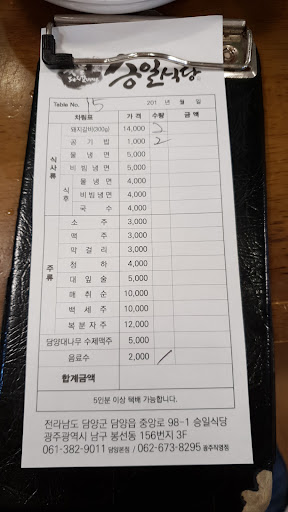 승일식당
Table No. 15 201 년 월 일
차림표 가 격 수량 금 액
식사류
돼지갈비(300g) 14,000 2
공 기 밥 1,000 2
물 냉 면 5,000
비 빔 냉 면 5,000
식후
물 냉 면 4,000
비 빔 냉 면 4,000
국 수 4,000
주류
소 주 3,000
맥 주 3,000
막 걸 리 3,000
청 하 4,000
대 잎 술 5,000
매 취 순 10,000
백 세 주 10,000
복 분 자 주 12,000
담양대나무 수제맥주 5,000
음료수 2,000 /
합계금액
5인분 이상 택배 가능합니다.
전라남도 담양군 담양읍 중앙로 98-1 승일식당
광주광역시 남구 봉선동 156번지 3F
061-382-9011 담양본점 / 062-673-8295 광주직영점